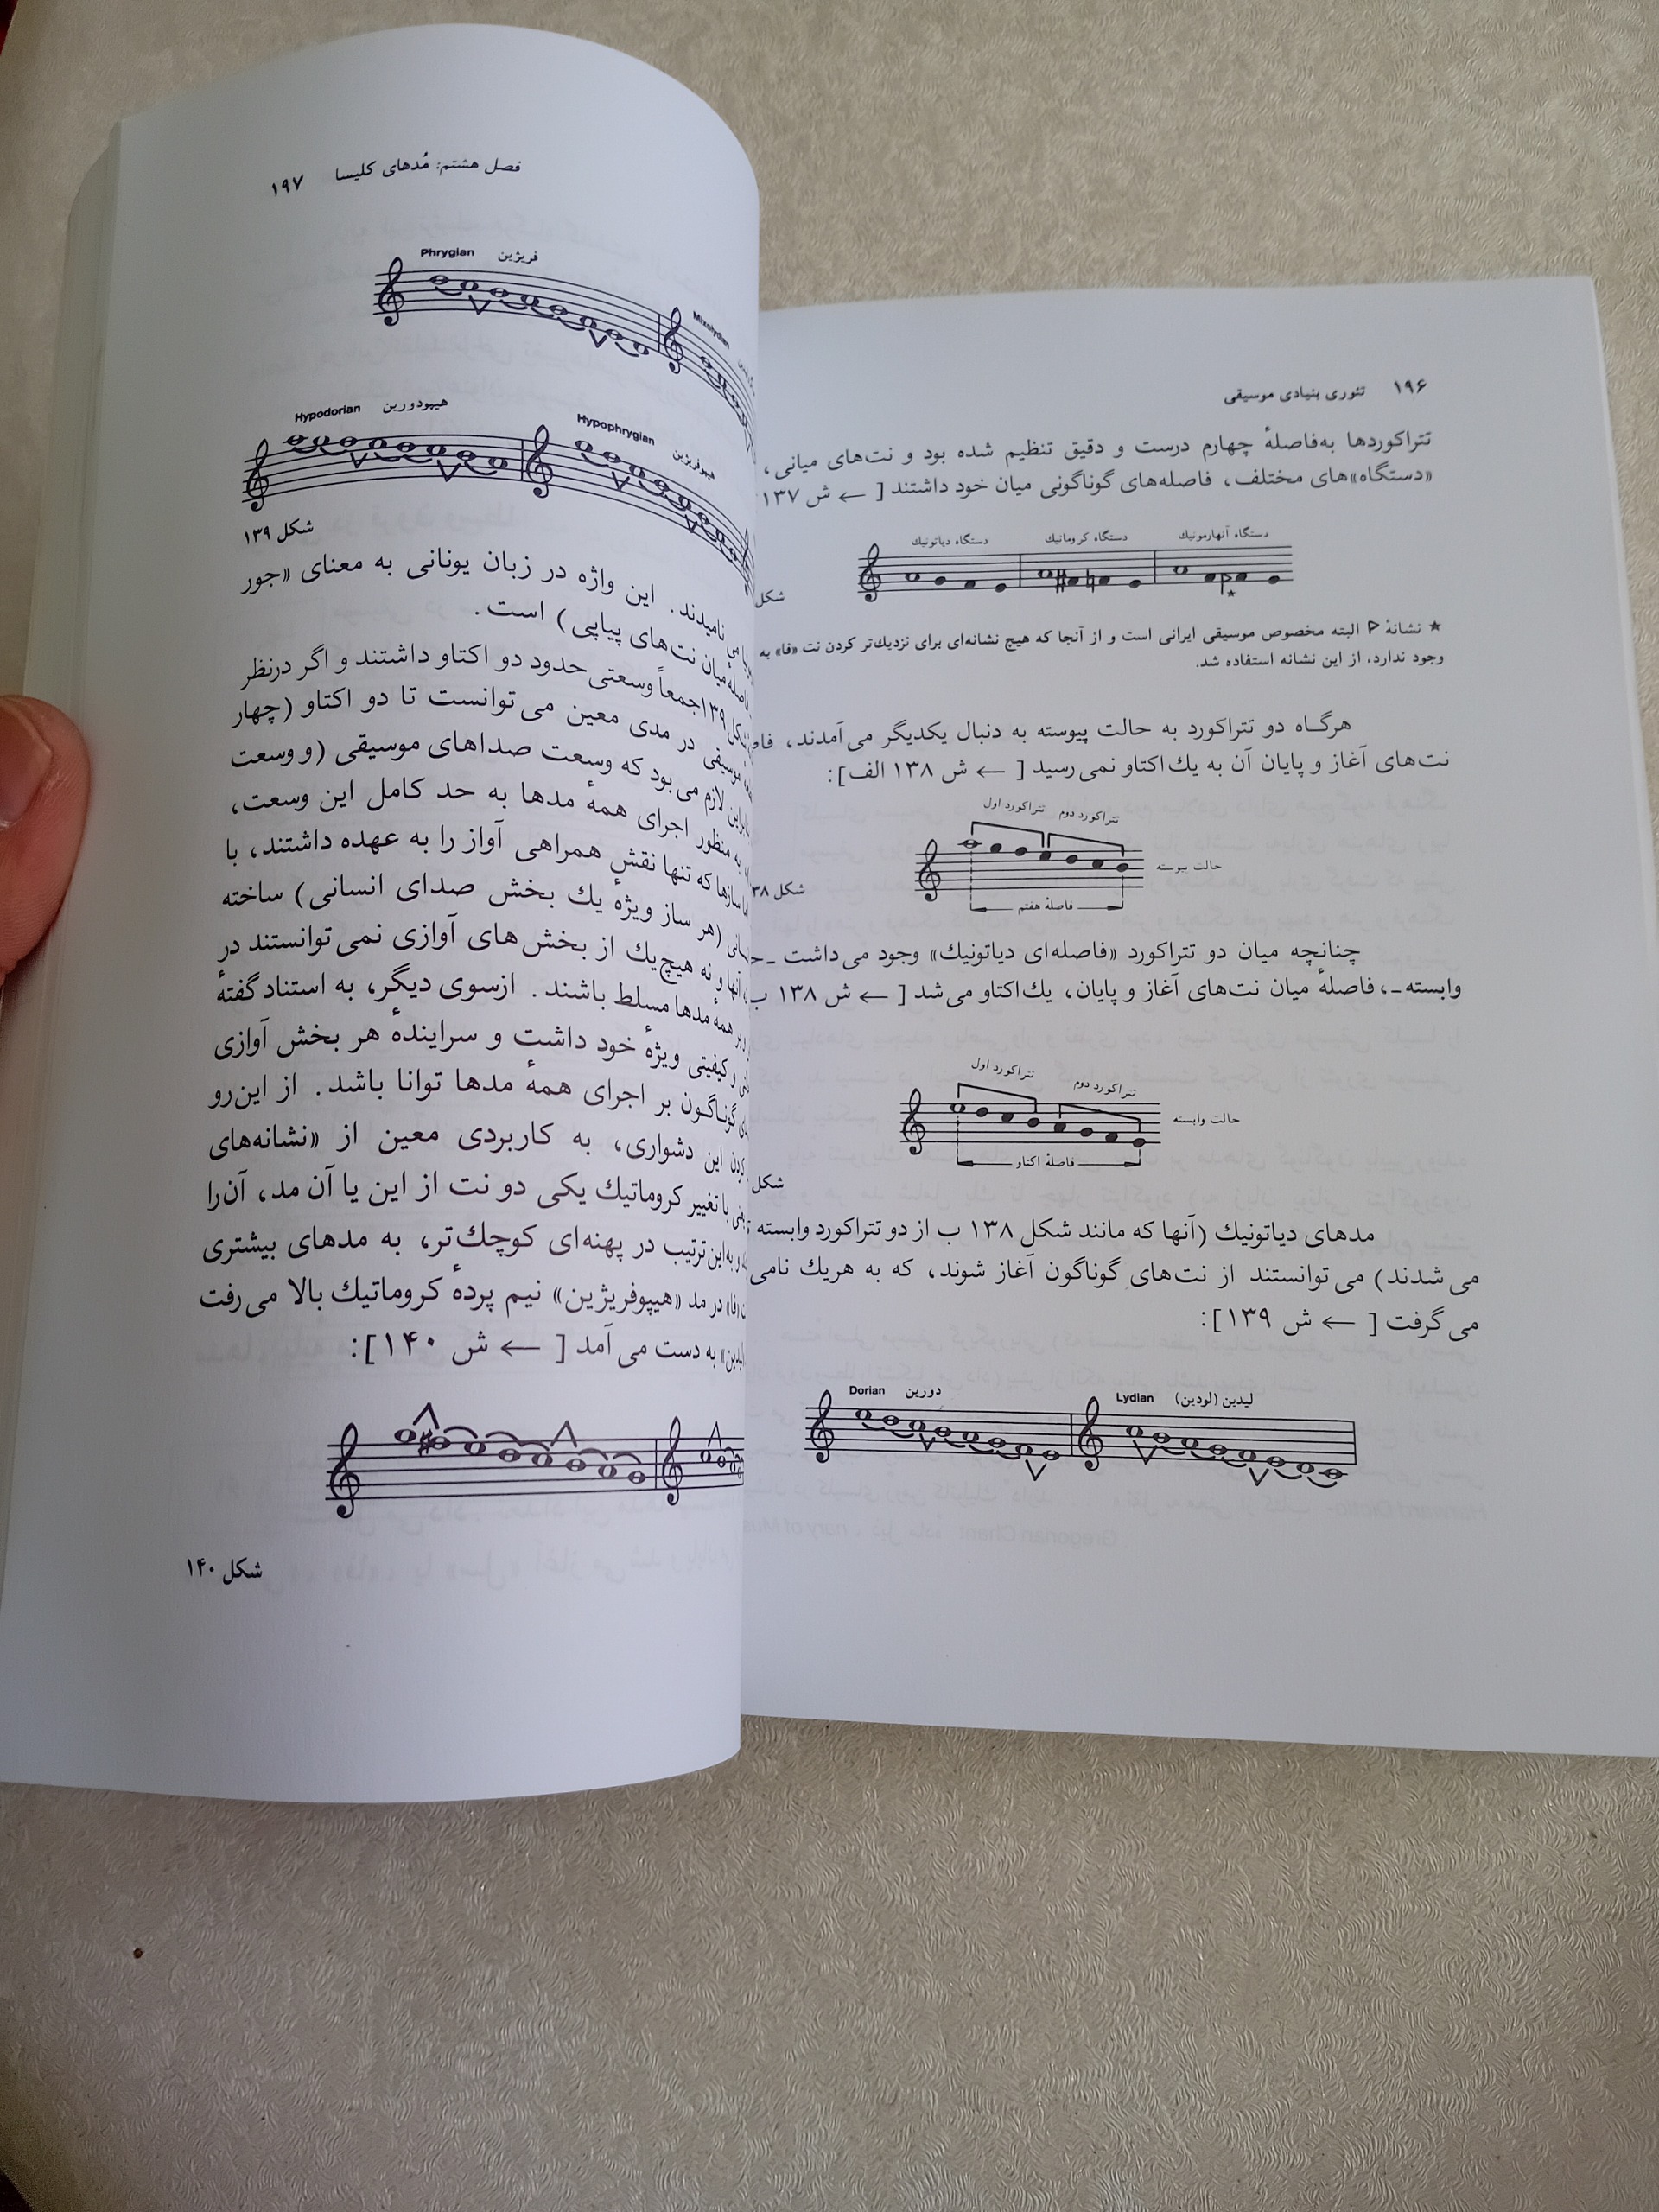 ۱۹۶ تئوری بنیادی موسیقی
تتراکوردها به‌فاصلهٔ چهارم درست و دقیق تنظیم شده بود و نت‌های میانی،
«دستگاه»های مختلف، فاصله‌های گوناگونی میان خود داشتند [ ← ش ۱۳۷
دستگاه دیاتونیك دستگاه کروماتیك دستگاه آنهارمونیك
شکل
★ نشانهٔ البته مخصوص موسیقی ایرانی است و از آنجا که هیچ نشانه‌ای برای نزدیك‌تر کردن نت «فا» به
وجود ندارد، از این نشانه استفاده شد.
هرگاه دو تتراکورد به حالت پیوسته به دنبال یکدیگر می‌آمدند،
نت‌های آغاز و پایان آن به یك اکتاو نمی‌رسید [ ← ش ۱۳۸ الف]:
تتراکورد اول تتراکورد دوم
حالت پیوسته
فاصلهٔ هفتم
شکل
چنانچه میان دو تتراکورد «فاصله‌ای دیاتونیك» وجود می‌داشت ـ
وابسته ـ، فاصلهٔ میان نت‌های آغاز و پایان، یك اکتاو می‌شد [ ← ش ۱۳۸ ب
تتراکورد اول تتراکورد دوم
حالت وابسته
فاصلهٔ اکتاو
شکل
مدهای دیاتونیك (آنها که مانند شکل ۱۳۸ ب از دو تتراکورد وابسته
می‌شدند) می‌توانستند از نت‌های گوناگون آغاز شوند، که به هریك نامی
می‌گرفت [ ← ش ۱۳۹]:
Dorian دورین Lydian لیدین (لودین)
فصل هشتم: مُدهای کلیسا ۱۹۷
Phrygian فریژین Mixolydian
Hypodorian هیپودورین Hypophrygian هیپوفریژین
شکل ۱۳۹
می‌نامیدند. این واژه در زبان یونانی به معنای «جور
فاصلهٔ میان نت‌های پیاپی) است.
۱۳۹ جمعاً وسعتی حدود دو اکتاو داشتند و اگر درنظر
موسیقی در مدی معین می‌توانست تا دو اکتاو (چهار
لازم می‌بود که وسعت صداهای موسیقی (و وسعت
به منظور اجرای همهٔ مدها به حد کامل این وسعت،
سازها که تنها نقش همراهی آواز را به عهده داشتند، با
(هر ساز ویژهٔ یك بخش صدای انسانی) ساخته
آنها و نه هیچ‌یك از بخش‌های آوازی نمی‌توانستند در
بر همهٔ مدها مسلط باشند. ازسوی دیگر، به استناد گفتهٔ
و کیفیتی ویژهٔ خود داشت و سرایندهٔ هر بخش آوازی
گوناگون بر اجرای همهٔ مدها توانا باشد. از این‌رو
کردن این دشواری، به کاربردی معین از «نشانه‌های
با تغییر کروماتیك یکی دو نت از این یا آن مد، آن‌را
و به‌این‌ترتیب در پهنه‌ای کوچك‌تر، به مدهای بیشتری
«فا» در مد «هیپوفریژین» نیم پردهٔ کروماتیك بالا می‌رفت
به دست می‌آمد [ ← ش ۱۴۰]:
شکل ۱۴۰